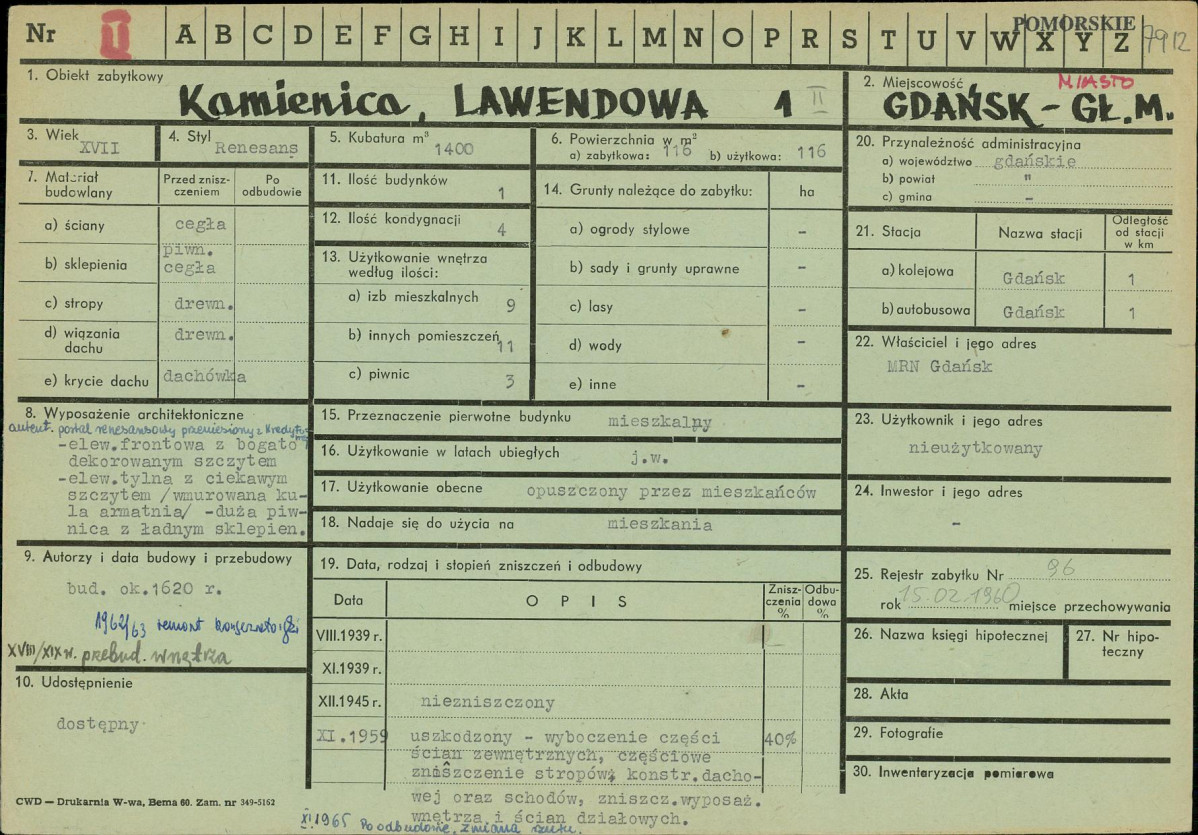 Nr II A B C D E F G H I J K L M N O P R S T U V W X Y Z
POMORSKIE
7912
1. Obiekt zabytkowy
Kamienica, LAWENDOWA 1 II
2. Miejscowość MIASTO
GDAŃSK - GŁ.M.
3. Wiek XVII
4. Styl Renesans
5. Kubatura m³ 1400
6. Powierzchnia w m²
a) zabytkowa: 116 b) użytkowa: 116
7. Materiał budowlany
Przed zniszczeniem
Po odbudowie
a) ściany cegła
b) sklepienia piwn. cegła
c) stropy drewn.
d) wiązania dachu drewn.
e) krycie dachu dachówka
8. Wyposażenie architektoniczne
autent. portal renesansowy przeniesiony z
-elew.frontowa z bogato
dekorowanym szczytem
-elew.tylna z ciekawym
szczytem /wmurowana ku-
la armatnia/ -duża piw-
nica z ładnym sklepien.
9. Autorzy i data budowy i przebudowy
bud. ok.1620 r.
1962/63 remont konserwatorski
XVIII/XIX w. przebud. wnętrza
10. Udostępnienie
dostępny
CWD — Drukarnia W-wa, Bema 60. Zam. nr 349-5162
11. Ilość budynków 1
12. Ilość kondygnacji 4
13. Użytkowanie wnętrza
według ilości:
a) izb mieszkalnych 9
b) innych pomieszczeń 11
c) piwnic 3
14. Grunty należące do zabytku: ha
a) ogrody stylowe -
b) sady i grunty uprawne -
c) lasy -
d) wody -
e) inne -
15. Przeznaczenie pierwotne budynku mieszkalny
16. Użytkowanie w latach ubiegłych j.w.
17. Użytkowanie obecne opuszczony przez mieszkańców
18. Nadaje się do użycia na mieszkania
19. Data, rodzaj i stopień zniszczeń i odbudowy
Data OPIS Zniszczenia % Odbudowa %
VIII.1939 r.
XI.1939 r.
XII.1945 r. niezniszczony
XI.1959 uszkodzony - wyboczenie części 40%
ścian zewnętrznych, częściowe
zniszczenie stropów, konstr.dacho-
wej oraz schodów, zniszcz.wyposaż.
wnętrza i ścian działowych.
XI.1965 Po odbudowie, zmiana rzutu.
20. Przynależność administracyjna
a) województwo gdańskie
b) powiat "
c) gmina -
21. Stacja Nazwa stacji Odległość od stacji w km
a) kolejowa Gdańsk 1
b) autobusowa Gdańsk 1
22. Właściciel i jego adres
MRN Gdańsk
23. Użytkownik i jego adres
nieużytkowany
24. Inwestor i jego adres
-
25. Rejestr zabytku Nr 96
rok 15.02.1960 miejsce przechowywania
26. Nazwa księgi hipotecznej
27. Nr hipoteczny
28. Akta
29. Fotografie
30. Inwentaryzacja pomiarowa